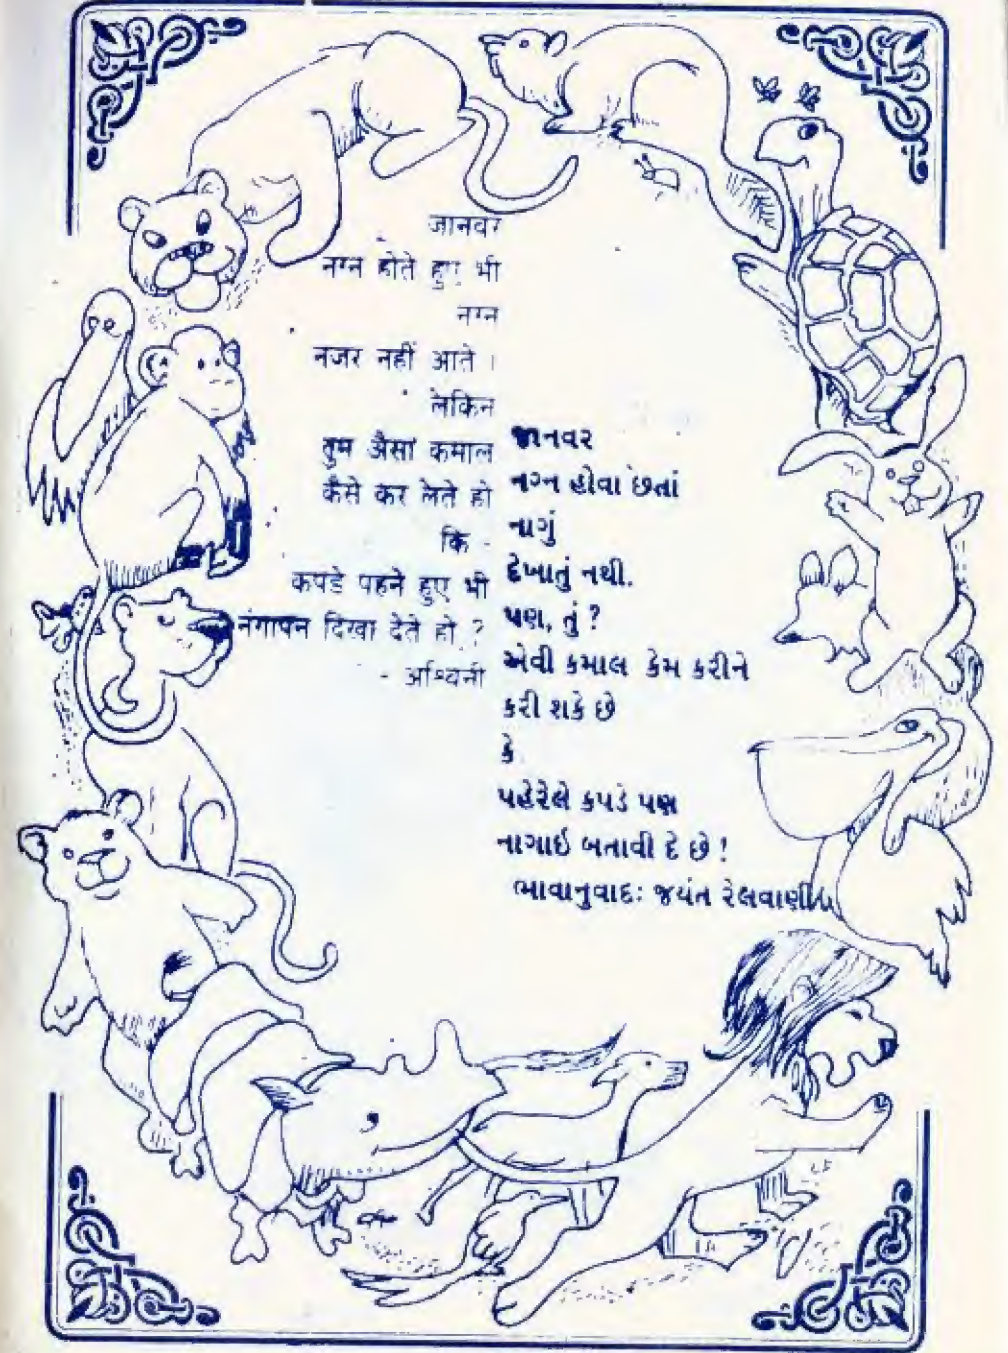 जानवर
नग्न होते हुए भी
नग्न
नजर नहीं आते ।
लेकिन
तुम अैसा कमाल
कैसे कर लेते हो
कि -
कपडे पहने हुए भी
नंगापन दिखा देते हो ?
- अश्विनी
જાનવર
નગ્ન હોવા છતાં
નાગું
દેખાતું નથી.
પણ, તું ?
એવી કમાલ કેમ કરીને
કરી શકે છે
કે
પહેરેલે કપડે પણ
નાગાઇ બતાવી દે છે !
ભાવાનુવાદઃ જયંત રેલવાણી